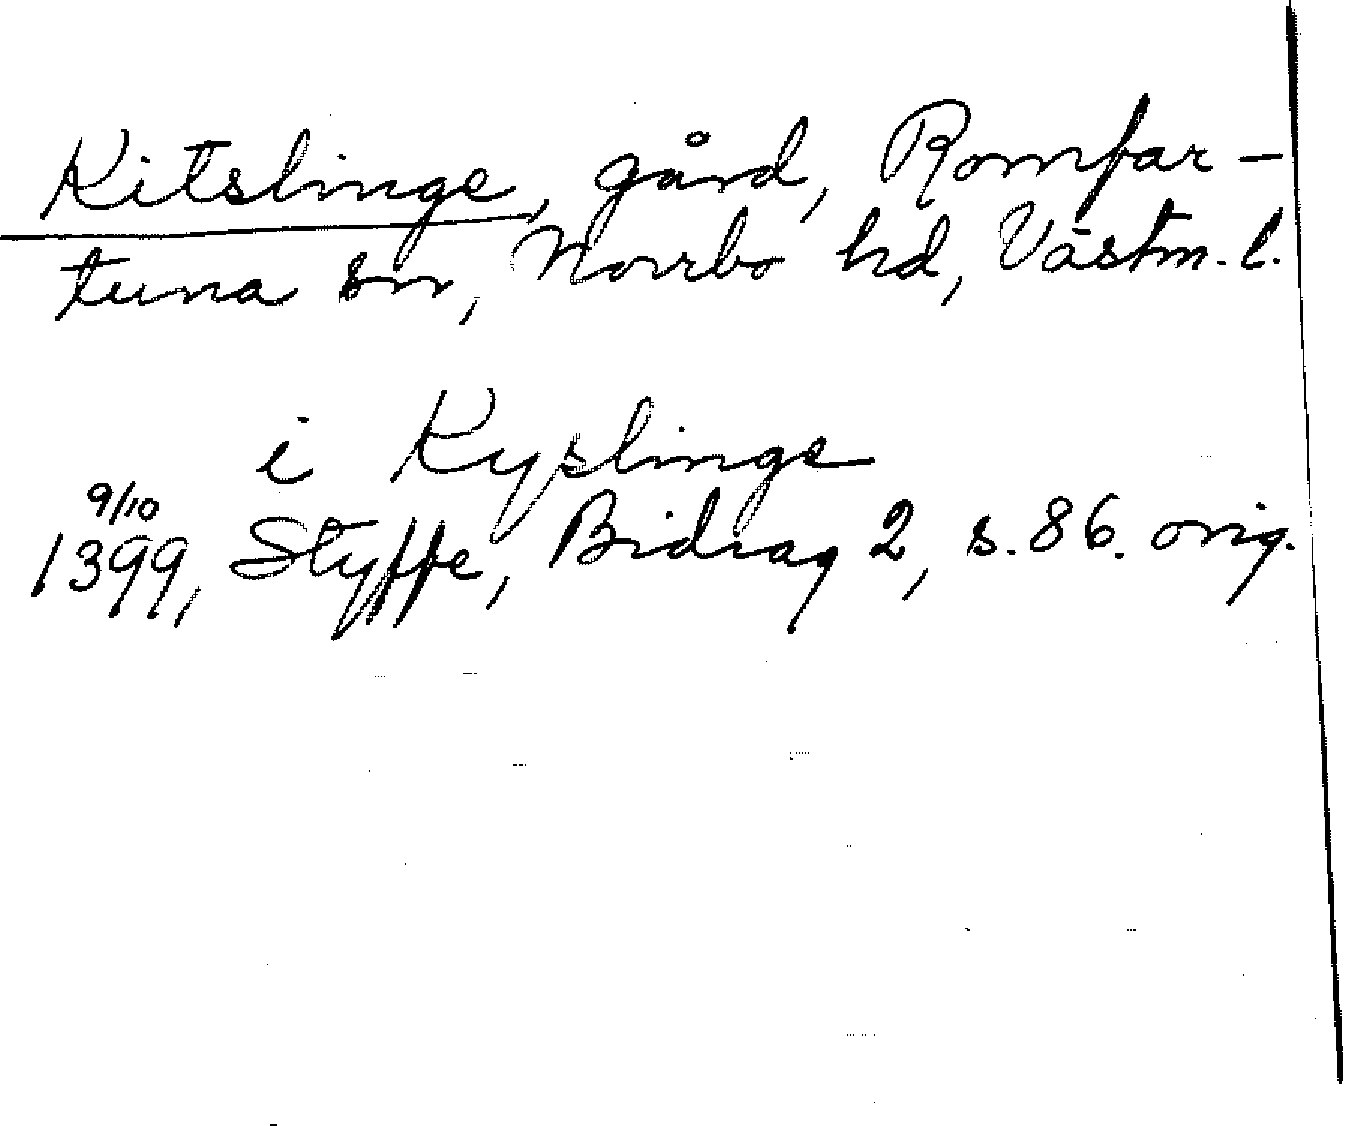 Kitslinge, gård, Romfar-
tuna sn, Norrbo hd, Västm. l.
i Kyplinge
9/10
1399, Styffe, Bidrag 2, s. 86. orig.